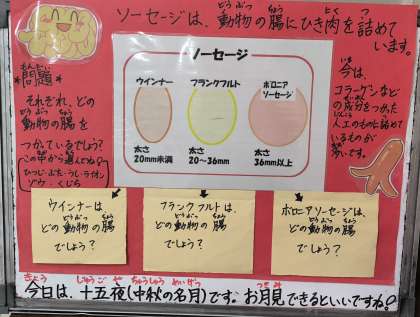 ソーセージは、動物の腸にひき肉を詰めています。
ソーセージ
ウインナー
太さ
20mm未満
フランクフルト
太さ
20～36mm
ボロニア
ソーセージ
太さ
36mm以上
問題
それぞれ、どの
動物の腸を
つかっているでしょう?
この中から選んでね!
ひつじ・ぶた・うし・ライオン
ゾウ・くじら
今は、
コラーゲンなど
の成分をつかった
人工のものに詰めて
いるものが
多いです。
ウインナーは
どの動物の腸
でしょう?
フランクフルトは、
どの動物の腸
でしょう?
ボロニアソーセージは、
どの動物の腸
でしょう?
今日は、十五夜(中秋の名月)です。お月見できるといいですね!